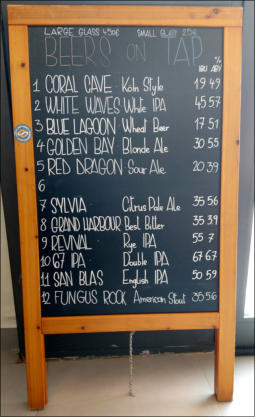 LARGE GLASS 450€ SMALL GLASS 25€
BEERS ON TAP
%
IBU ABV
1 CORAL CAVE Köln Style 19 49
2 WHITE WAVES White IPA 45 57
3 BLUE LAGOON Wheat Beer 17 51
4 GOLDEN BAY Blonde Ale 30 55
5 RED DRAGON Sour Ale 20 39
6
7 SYLVIA Citrus Pale Ale 35 56
8 GRAND HARBOUR Best Bitter 35 39
9 REVIVAL Rye IPA 55 7
10 G7 IPA Double IPA 67 67
11 SAN BLAS English IPA 50 59
12 FUNGUS ROCK American Stout 35 56